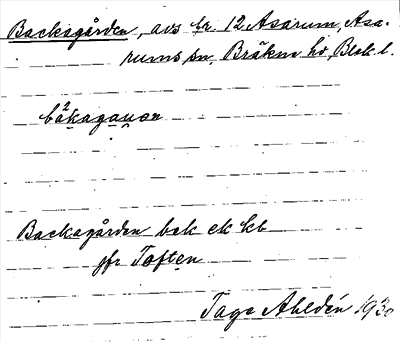 Backagården, avs fr. 12 Asarum, Asa-
rums sn, Bräkne hd, Blek. l.
Backagården bek ek kb
jfr Toften
Tage Ahldén 1930